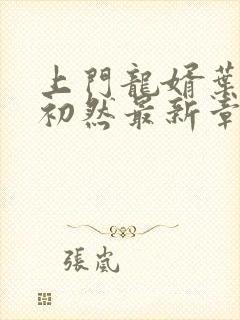 上門龍婿葉
初然最新章
張嵐